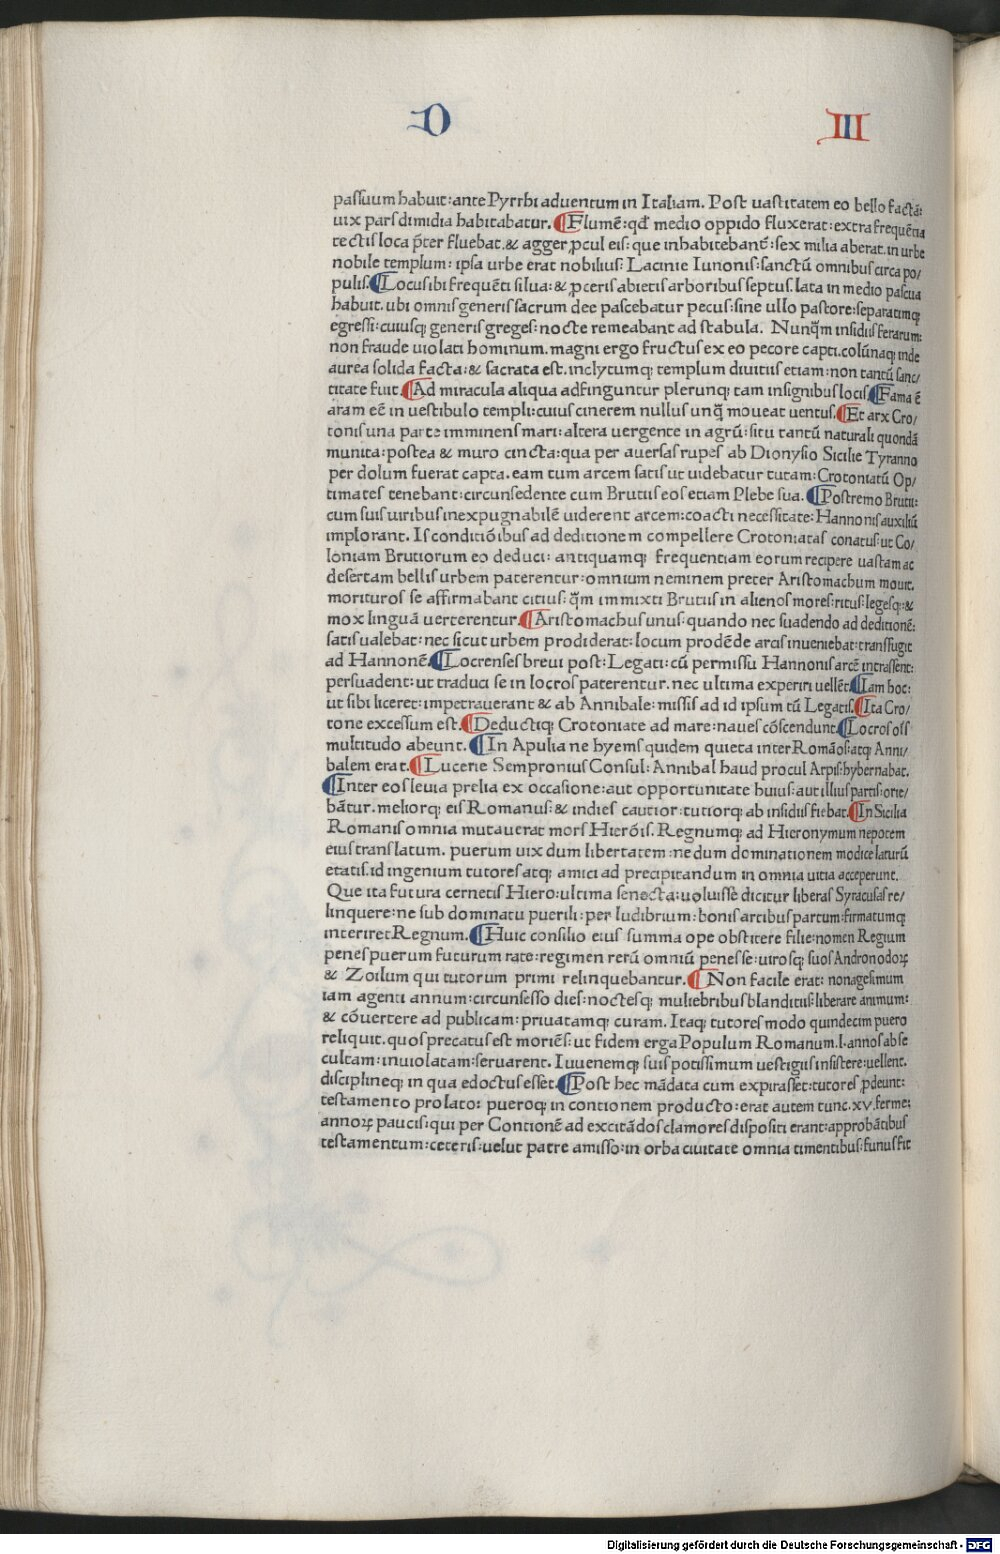 D III
passuum habuit: ante Pyrrhi aduentum in Italiam. Post uastitatem eo bello factā:
uix pars dimidia habitabatur. ¶Flumē: qđ medio oppido fluxerat: extra frequētia
tectis loca p̄ter fluebat. & agger ꝓcul eis: que inhabitebant̄: sex milia aberat. in urbe
nobile templum: ipsa urbe erat nobilius: Lacinie Iunonis: sanctū omnibus circa po/
pulis. ¶Locus ibi frequēti silua: & ꝓceris abietis arboribus septus. lata in medio pascua
habuit. ubi omnis generis sacrum dee pascebatur pecus: sine ullo pastore: separatimqꝫ
egressi: cuiusqꝫ generis greges: nocte remeabant ad stabula. Nunq̄m insidiis ferarum:
non fraude uiolati hominum. magni ergo fructus ex eo pecore capti. colūnaqꝫ inde
aurea solida facta: & sacrata est. inclytumqꝫ templum diuitiis etiam: non tantū sanc/
titate fuit. ¶Ad miracula aliqua adfinguntur plerunqꝫ tam insignibus locis ¶Fama ē
aram eē in uestibulo templi: cuius cinerem nullus unq̄ moueat uentus. ¶Et arx Cro/
tonis una parte imminens mari: altera uergente in agrū: situ tantū naturali quondā
munita: postea & muro cincta: qua per auersas rupes ab Dionysio Sicilie Tyranno
per dolum fuerat capta. eam tum arcem satis ut uidebatur tutam: Crotoniatū Op/
timates tenebant: circunsedente cum Brutiis eos etiam Plebe sua. ¶Postremo Brutii:
cum suis uiribus inexpugnabilē uiderent arcem: coacti necessitate: Hannonis auxiliū
implorant. Is conditiōibus ad deditionem compellere Crotoniatas conatus: ut Co/
loniam Brutiorum eo deduci: antiquamqꝫ frequentiam eorum recipere uastam ac
desertam bellis urbem paterentur: omnium neminem preter Aristomachum mouit.
morituros se affirmabant citius: q̄m immixti Brutiis in alienos mores: ritus: legesqꝫ: &
mox linguā uerterentur. ¶Aristomachus unus: quando nec suadendo ad deditionē:
satis ualebat: nec sicut urbem prodiderat: locum prodēde arcis inueniebat: transfugit
ad Hannonē. ¶Locrenses breui post: Legati: cū permissu Hannonis arcē intrassent:
persuadent: ut traduci se in locros paterentur. nec ultima experiri uellēt. ¶Iam hoc:
ut sibi liceret: impetrauerant & ab Annibale: missis ad id ipsum tū Legatis. ¶Ita Cro/
tone excessum est. ¶Deductiqꝫ Crotoniate ad mare: naues cōscendunt. ¶Locros oīs
multitudo abeunt. ¶In Apulia ne hyems quidem quieta inter Romāos: atqꝫ Anni/
balem erat. ¶Lucerie Sempronius Consul: Annibal haud procul Arpis: hybernabat.
¶Inter eos leuia prelia ex occasione: aut opportunitate huius: aut illius partis: orie/
bātur. meliorqꝫ eis Romanus: & indies cautior: tutiorqꝫ ab insidiis fiebat. ¶In Sicilia
Romanis omnia mutauerat mors Hierōis. Regnumqꝫ ad Hieronymum nepotem
eius translatum. puerum uix dum libertatem: ne dum dominationem modice laturū
etatis. id ingenium tutores atqꝫ amici ad precipitandum in omnia uitia acceperunt.
Que ita futura cernetis Hiero: ultima senecta: uoluisse dicitur liberas Syracusas re/
linquere: ne sub dominatu puerili: per ludibrium: bonis artibus partum: firmatumqꝫ
interiret Regnum. ¶Huic consilio eius summa ope obstitere filie: nomen Regium
penes puerum futurum rate: regimen rerū omniū penes se: uirosqꝫ suos Andronodoꝝ
& Zoilum qui tutorum primi relinquebantur. ¶Non facile erat: nonagesimum
iam agenti annum: circunsesso dies: noctesqꝫ muliebribus blanditiis: liberare animum:
& cōuertere ad publicam: priuatamqꝫ curam. Itaqꝫ tutores modo quindecim puero
reliquit. quos precatus est moriēs: ut fidem erga Populum Romanum. l. annos ab se
cultam: inuiolatam: seruarent. Iuuenemqꝫ suis potissimum uestigiis insistere: uellent.
disciplineqꝫ in qua edoctus esset. ¶Post hec mādata cum expirasset: tutores ꝓdeunt:
testamento prolato: pueroqꝫ in contionem producto: erat autem tunc. xv. ferme:
annoꝝ paucis: qui per Contionē ad excitādos clamores dispositi erant: approbātibus
testamentum: ceteris: uelut patre amisso: in orba ciuitate omnia timentibus: funus fit
Digitalisierung gefördert durch die Deutsche Forschungsgemeinschaft - DFG